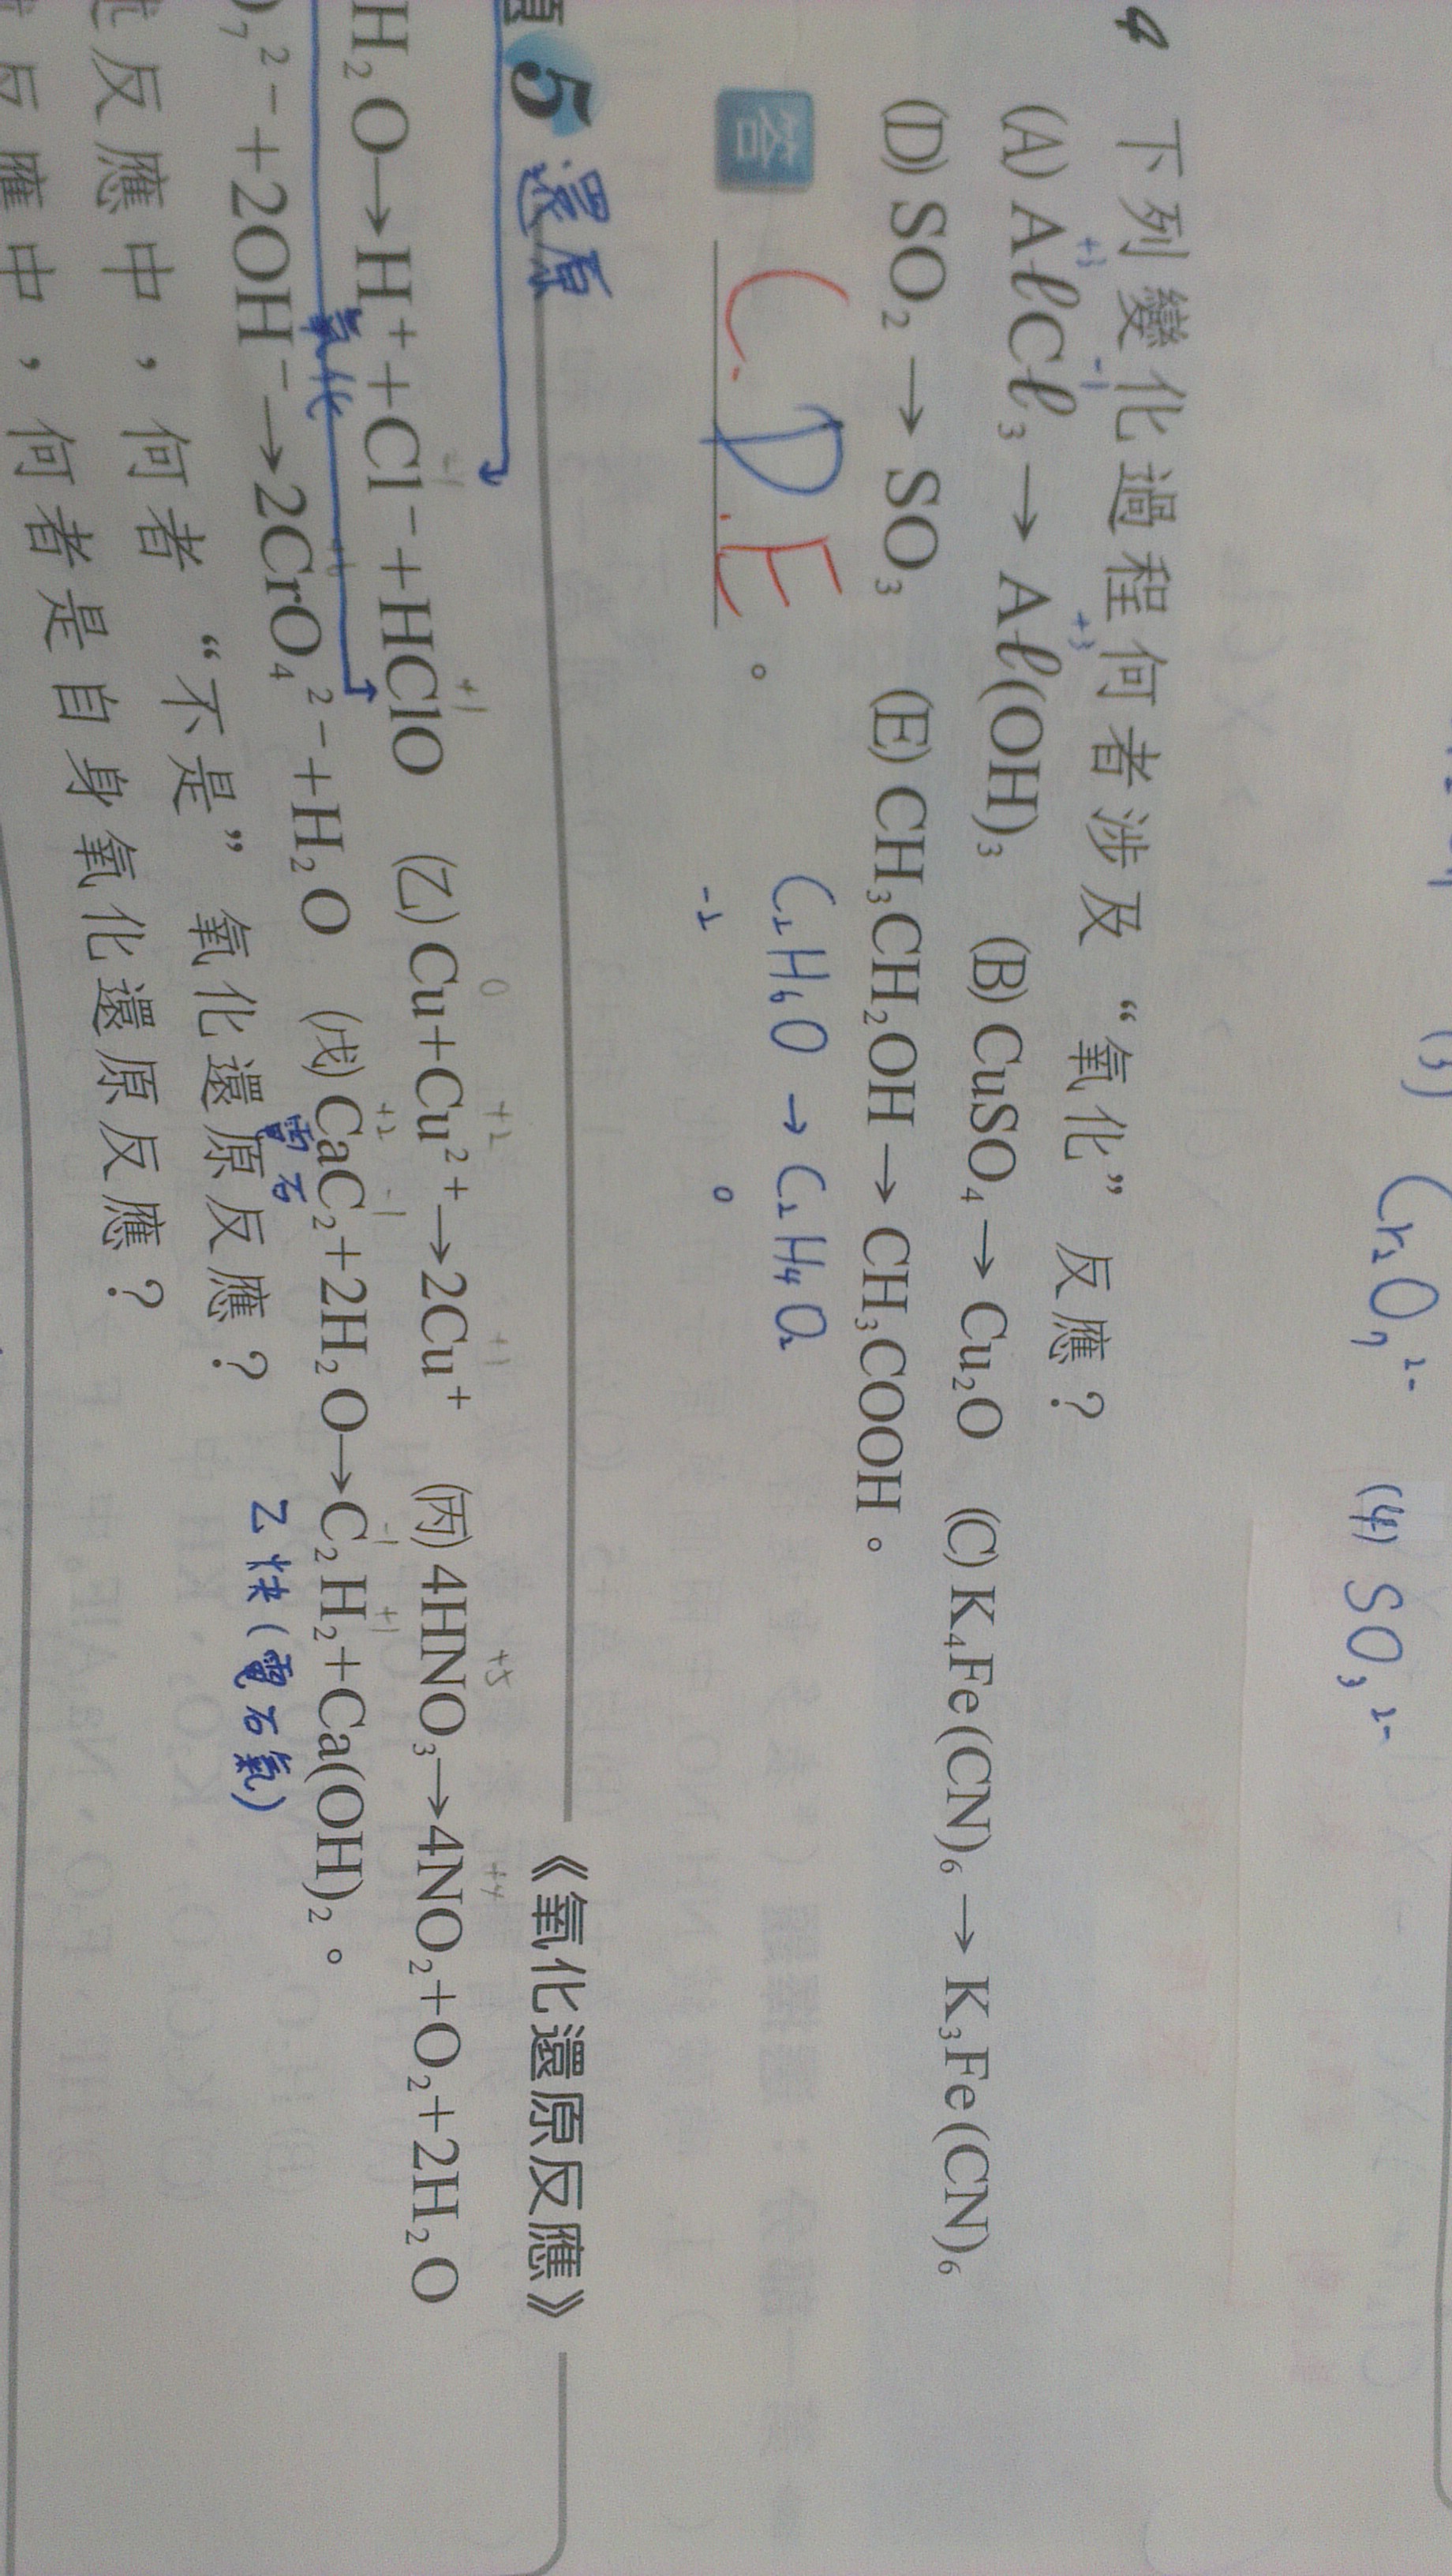 (3) Cr₂O₇²⁻ (4) SO₃²⁻
4 下列變化過程何者涉及“氧化”反應？
+3 -1 +3
(A) AℓCℓ₃→Aℓ(OH)₃ (B) CuSO₄→Cu₂O (C) K₄Fe(CN)₆→K₃Fe(CN)₆
(D) SO₂→SO₃ (E) CH₃CH₂OH→CH₃COOH。
C₂H₆O → C₂H₄O₂
答 C.D.E。
-2 0
5 還原 《氧化還原反應》
+1 +1 0 +2 +1 +5 +4
H₂O→H⁺+Cl⁻+HClO (乙) Cu+Cu²⁺→2Cu⁺ (丙) 4HNO₃→4NO₂+O₂+2H₂O
氧化 +6 +2 -1 -1 +1
₇²⁻+2OH⁻→2CrO₄²⁻+H₂O (戊) CaC₂+2H₂O→C₂H₂+Ca(OH)₂。
電石 乙炔(電石氣)
反應中，何者“不是”氧化還原反應？
反應中，何者是自身氧化還原反應？